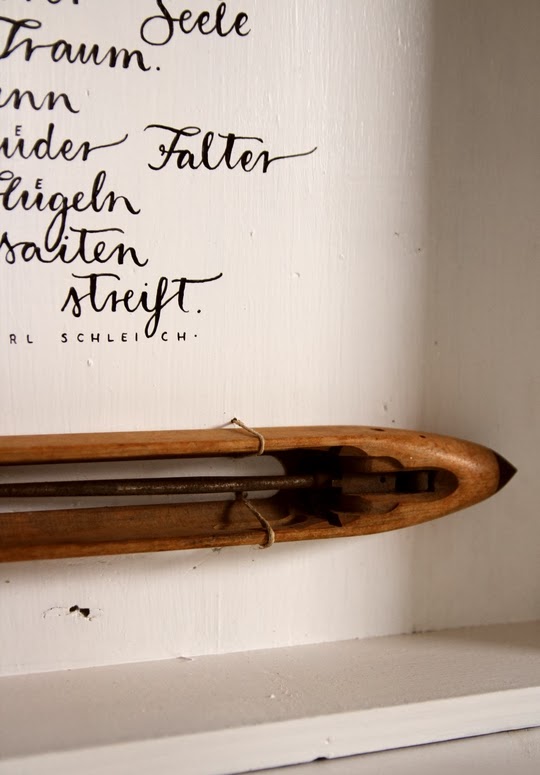 Seele
Traum.
üder Falter
lügeln
saiten
streift.
RL SCHLEICH.